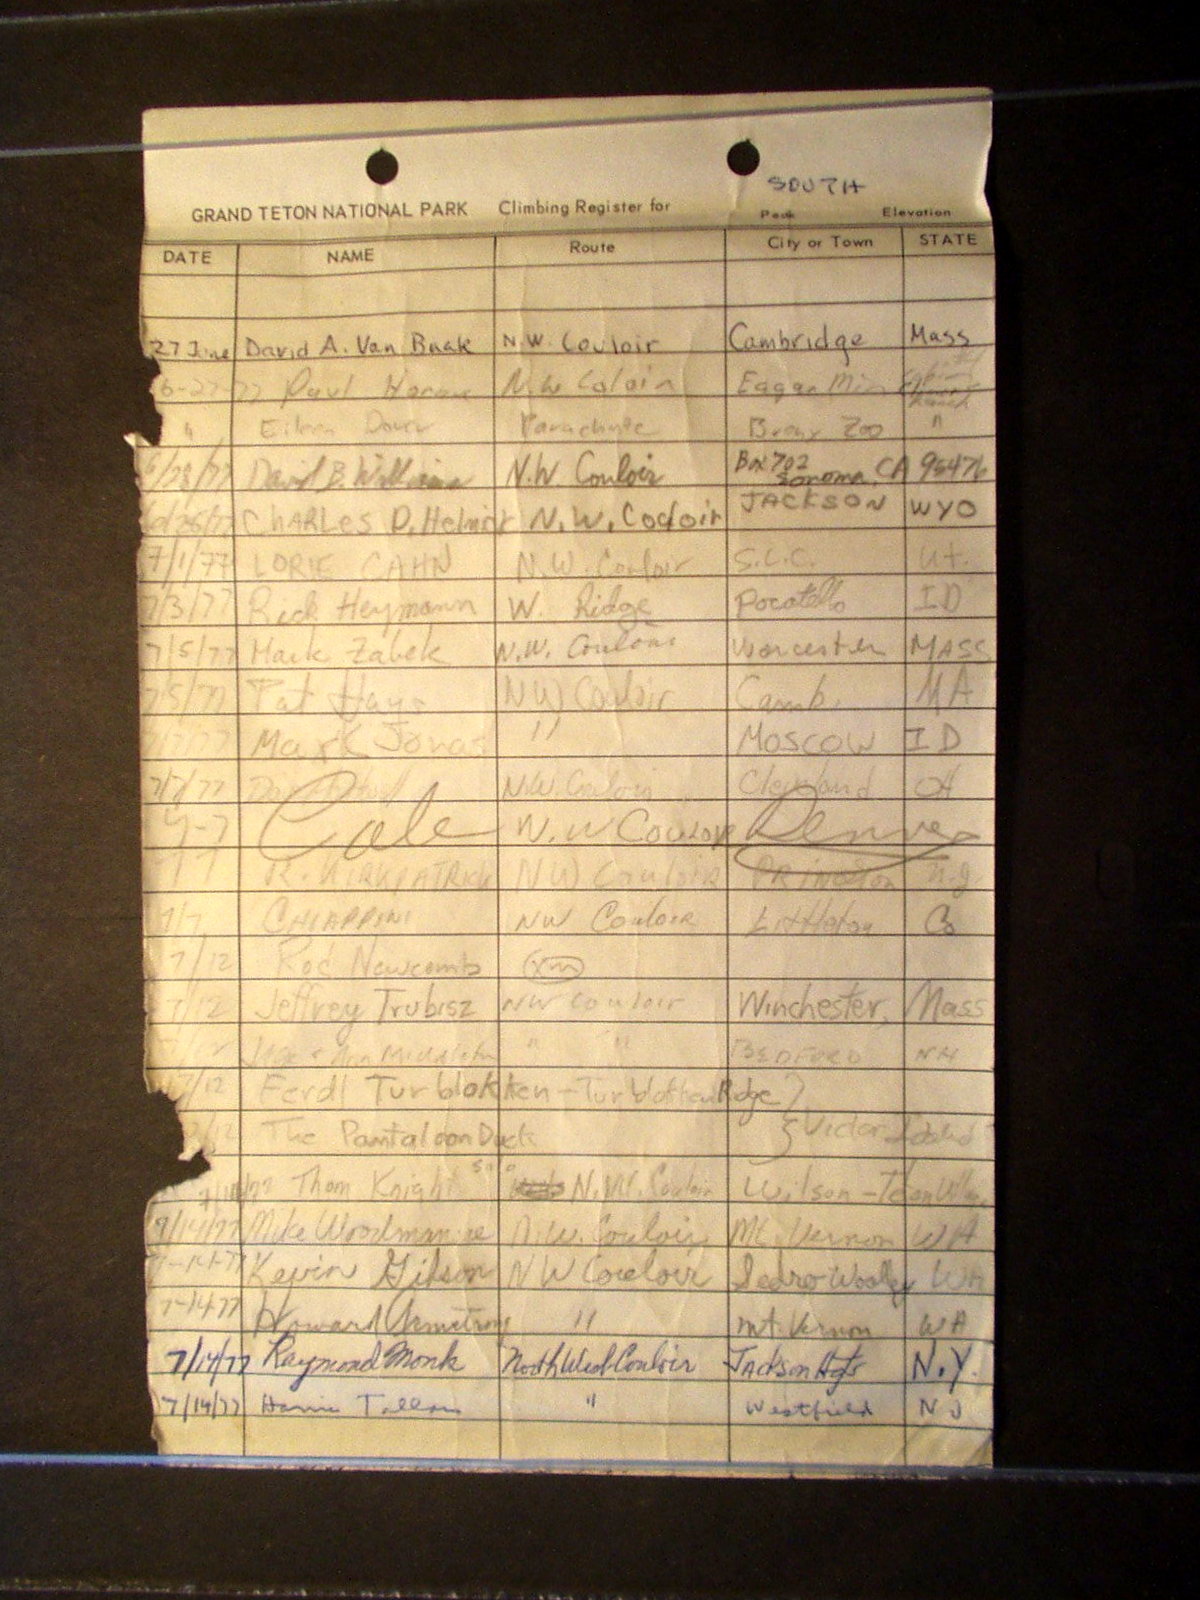 SOUTH
GRAND TETON NATIONAL PARK Climbing Register for Peak Elevation
DATE NAME Route City or Town STATE
27 June David A. Van Baak N.W. Couloir Cambridge Mass
6-27-77 Paul N.W. Eagan Min
" Eileen Parachute Bronx Zoo "
6/28/77 David B. Williams N.W. Couloir Box 702 Sonoma, CA 95476
CHARLES D. N.W. Cocloir JACKSON WYO
7/1/77 LORIE CAHN N.W. Couloir S.L.C. Ut.
7/3/77 Rick Heymann W. Ridge Pocatello ID
7/5/77 Mark Zabek N.W. Worcester MASS
7/5/77 Pat Hays NW Couloir Camb. MA
7/7/77 Mark Jonas " Moscow ID
7/7/77 N.W. Couloir Cleveland OH
7-7 Cale N.W Couloir Denver
R. KIRKPATRICK NW Couloir PRINCETON N.J.
7/7 CHIAPPINI NW Couloir Littleton Co
7/12 Rod Newcomb
7/12 Jeffrey Trubisz NW Couloir Winchester, Mass
" " BEDFORD NH
7/12 Ferdl Turblokken - Ridge
The Pantaloon Duck Victor Idaho
Thom Knight solo N.W. Couloir Wilson
7/14/77 Mike Woodmansee N.W. Couloir Mt. Vernon WA
7-14-77 Kevin Gilson NW Couloir Sedro Woolley WA
7-14-77 Howard Armstrong " mt. Vernon WA
7/14/77 Raymond Monk NorthWest Couloir Jackson Hgts N.Y.
7/14/77 " Westfield NJ